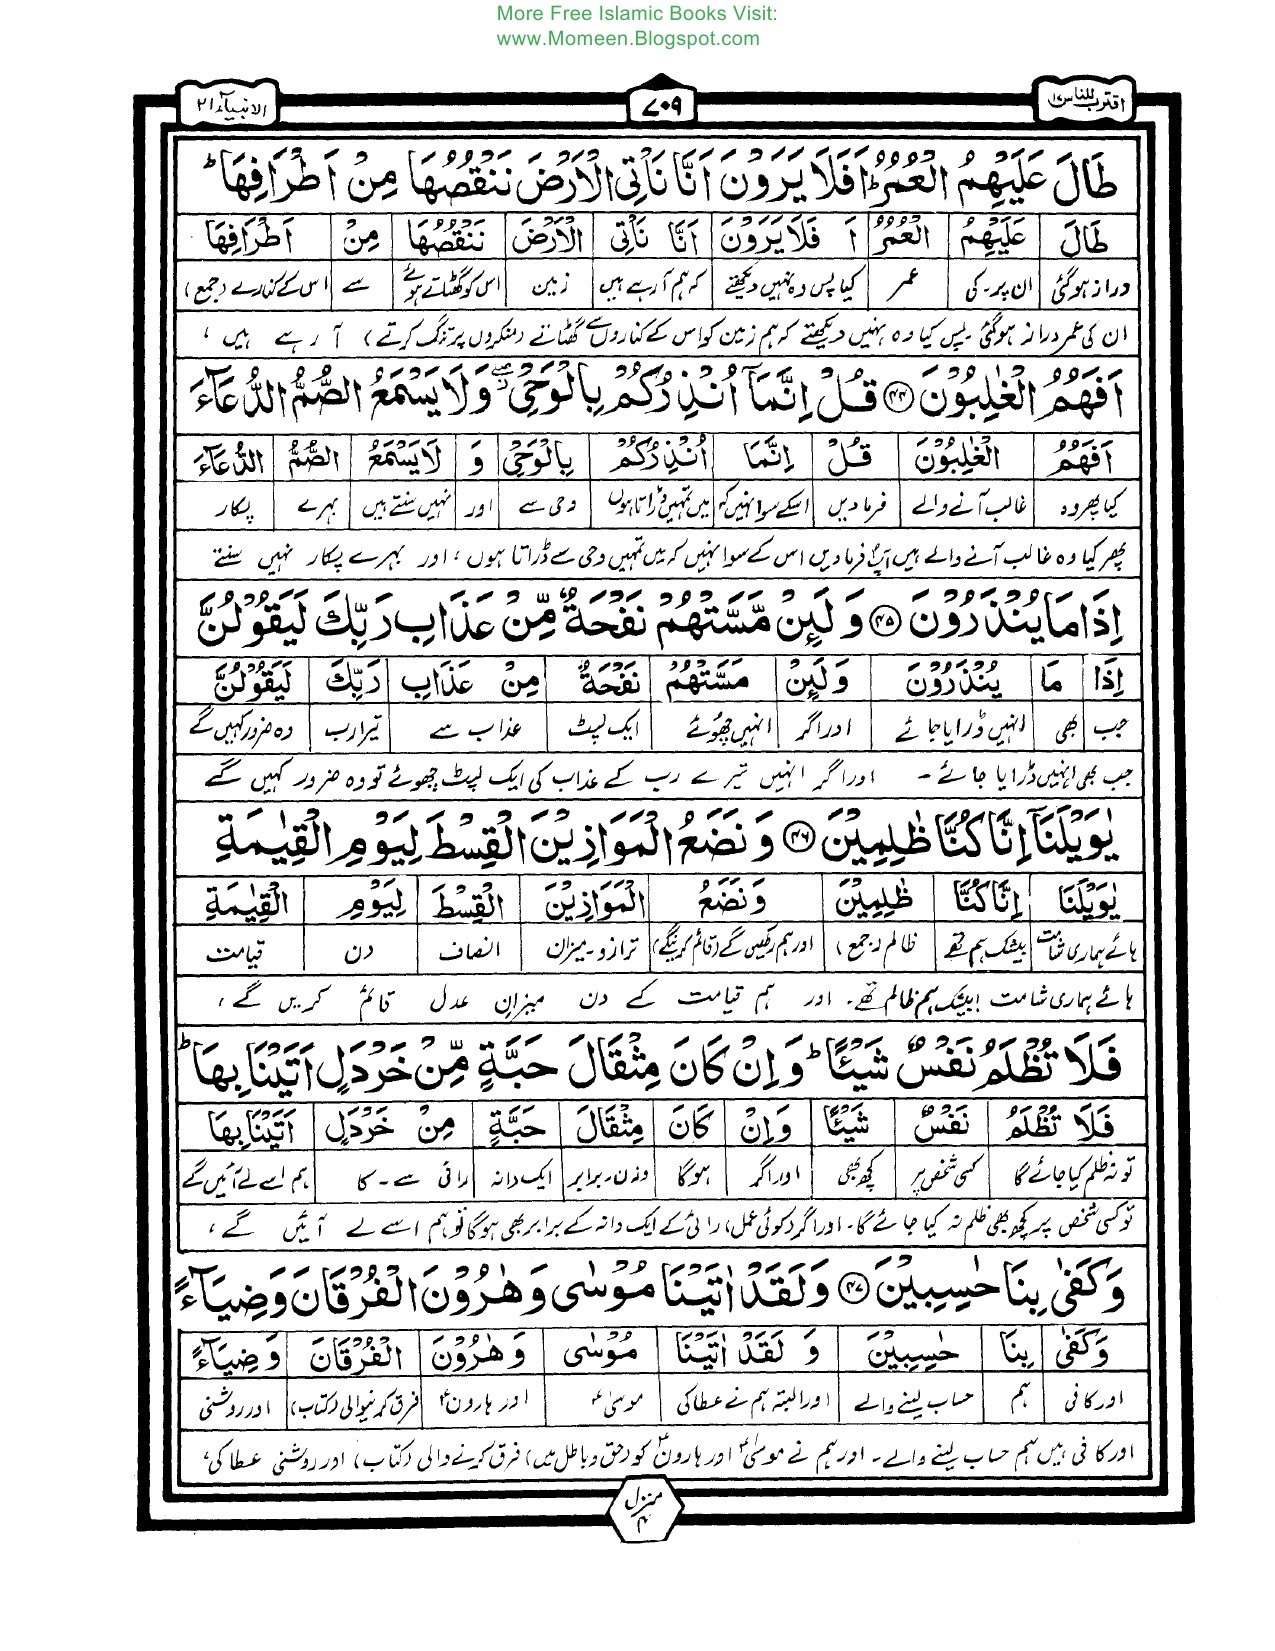 More Free Islamic Books Visit:
www.Momeen.Blogspot.com
اقترب للناس ۱۷
۷۰۹
الانبیآء ۲۱
طَالَ عَلَيْهِمُ الْعُمُرُ ؕ اَفَلَا يَرَوْنَ اَنَّا نَاْتِى الْاَرْضَ نَنْقُصُهَا مِنْ اَطْرَافِهَا ؕ
طَالَ عَلَيْهِمُ الْعُمُرُ اَ فَلَا يَرَوْنَ اَنَّا نَاْتِى الْاَرْضَ نَنْقُصُهَا مِنْ اَطْرَافِهَا
دراز ہوگئی ان پر۔کی عمر کیا پس وہ نہیں دیکھتے کہ ہم آرہے ہیں زمین اس کو گھٹاتے ہوئے سے اس کے کنارے (جمع)
ان کی عمر دراز ہوگئی پس کیا وہ نہیں دیکھتے کہ ہم زمین کو اس کے کناروں سے گھٹاتے (منکروں پر تنگ کرتے) آ رہے ہیں،
اَفَهُمُ الْغٰلِبُوْنَ ﴿۴۴﴾ قُلْ اِنَّمَآ اُنْذِرُكُمْ بِالْوَحْىِ ۖ وَلَا يَسْمَعُ الصُّمُّ الدُّعَآءَ
اَفَهُمُ الْغٰلِبُوْنَ قُلْ اِنَّمَا اُنْذِرُكُمْ بِالْوَحْىِ وَ لَا يَسْمَعُ الصُّمُّ الدُّعَآءَ
کیا پھر وہ غالب آنے والے فرمادیں اسکے سوا نہیں کہ میں تمہیں ڈراتا ہوں وحی سے اور نہیں سنتے ہیں بہرے پکار
پھر کیا وہ غالب آنے والے ہیں آپ فرمادیں اس کے سوا نہیں کہ میں تمہیں وحی سے ڈراتا ہوں، اور بہرے پکار نہیں سنتے
اِذَا مَا يُنْذَرُوْنَ ﴿۴۵﴾ وَلَئِنْ مَّسَّتْهُمْ نَفْحَةٌ مِّنْ عَذَابِ رَبِّكَ لَيَقُوْلُنَّ
اِذَا مَا يُنْذَرُوْنَ وَلَئِنْ مَسَّتْهُمْ نَفْحَةٌ مِنْ عَذَابِ رَبِّكَ لَيَقُوْلُنَّ
جب بھی انہیں ڈرایا جائے اور اگر انہیں چھوئے ایک لپٹ عذاب سے تیرا رب وہ ضرور کہیں گے
جب بھی انہیں ڈرایا جائے۔ اور اگر انہیں تیرے رب کے عذاب کی ایک لپٹ چھوئے تو وہ ضرور کہیں گے
يٰوَيْلَنَآ اِنَّا كُنَّا ظٰلِمِيْنَ ﴿۴۶﴾ وَنَضَعُ الْمَوَازِيْنَ الْقِسْطَ لِيَوْمِ الْقِيٰمَةِ
يٰوَيْلَنَا اِنَّا كُنَّا ظٰلِمِيْنَ وَنَضَعُ الْمَوَازِيْنَ الْقِسْطَ لِيَوْمِ الْقِيٰمَةِ
ہائے ہماری شامت بیشک ہم تھے ظالم (جمع) اور ہم رکھیں گے (قائم کرینگے) ترازو۔میزان انصاف دن قیامت
ہائے ہماری شامت! بیشک ہم ظالم تھے۔ اور ہم قیامت کے دن میزانِ عدل قائم کریں گے،
فَلَا تُظْلَمُ نَفْسٌ شَيْـًٔا ؕ وَاِنْ كَانَ مِثْقَالَ حَبَّةٍ مِّنْ خَرْدَلٍ اَتَيْنَا بِهَا ؕ
فَلَا تُظْلَمُ نَفْسٌ شَيْـًٔا وَاِنْ كَانَ مِثْقَالَ حَبَّةٍ مِنْ خَرْدَلٍ اَتَيْنَا بِهَا
تو نہ ظلم کیا جائے گا کسی شخص پر کچھ بھی اور اگر ہوگا وزن۔برابر ایک دانہ رائی سے۔کا ہم اسے لے آئیں گے
تو کسی شخص پر کچھ بھی ظلم نہ کیا جائے گا۔ اور اگر (کوئی عمل) رائی کے ایک دانہ کے برابر بھی ہوگا تو ہم اسے لے آئیں گے،
وَكَفٰى بِنَا حٰسِبِيْنَ ﴿۴۷﴾ وَلَقَدْ اٰتَيْنَا مُوْسٰى وَهٰرُوْنَ الْفُرْقَانَ وَضِيَآءً
وَكَفٰى بِنَا حٰسِبِيْنَ وَ لَقَدْ اٰتَيْنَا مُوْسٰى وَهٰرُوْنَ الْفُرْقَانَ وَضِيَآءً
اور کافی ہم حساب لینے والے اور البتہ ہم نے عطا کی موسیٰؑ اور ہارونؑ فرق کرنیوالی (کتاب) اور روشنی
اور کافی ہیں ہم حساب لینے والے۔ اور ہم نے موسیٰؑ اور ہارونؑ کو (حق و باطل میں) فرق کرنے والی (کتاب) اور روشنی عطا کی،
منزل ۴